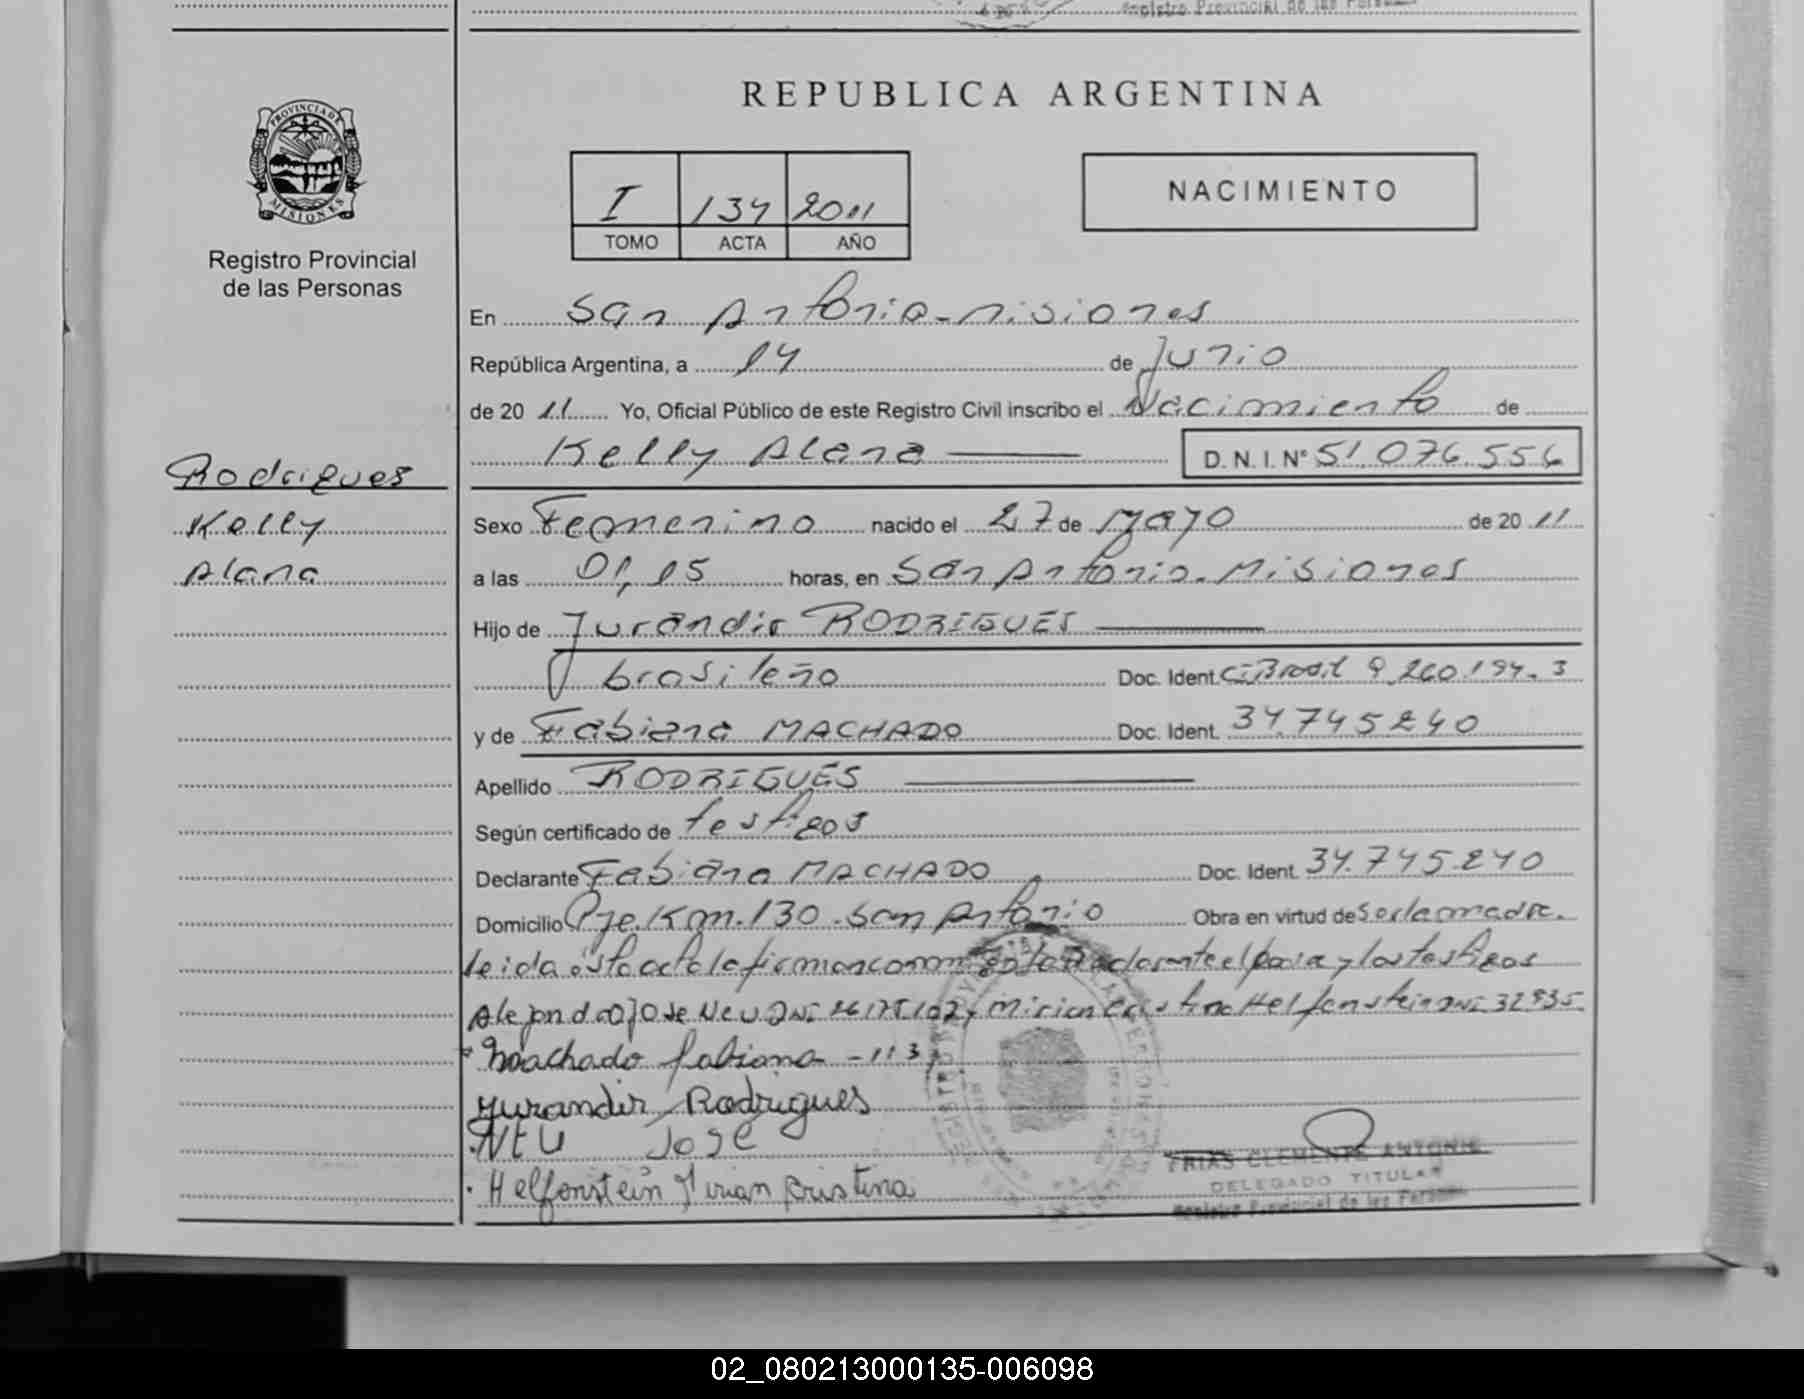 Registro Provincial de las Personas
REPUBLICA ARGENTINA
PROVINCIA DE MISIONES
Registro Provincial
de las Personas
I 134 2011
TOMO ACTA AÑO
NACIMIENTO
En San Antonio-Misiones
República Argentina, a 14 de Junio
de 20 11 Yo, Oficial Público de este Registro Civil inscribo el Nacimiento de
Kelly Alana D. N. I. Nº 51.076.556
Rodrigues
Kelly
Alana
Sexo Femenino nacido el 27 de Mayo de 20 11
a las 01,15 horas, en San Antonio-Misiones
Hijo de Jurandir RODRIGUES
brasileño Doc. Ident. CiBrasil 9.260.194-3
y de Fabiana MACHADO Doc. Ident. 34.745240
Apellido RODRIGUES
Según certificado de testigos
Declarante Fabiana MACHADO Doc. Ident. 34.745.240
Domicilio Pje. Km. 130. San Antonio Obra en virtud de Ser la madre.
leida esta acta la firman conmigo la declarante el padre y los testigos
Alejandro José Neu DNI y Mirian Cristina Helfenstein DNI 32935
Machado Fabiana - 113
Jurandir Rodrigues
NEU José
Helfenstein Mirian Cristina
FRIAS CLEMENTE ANTONIO
DELEGADO TITULAR
Registro Provincial de las Personas
02_080213000135-006098